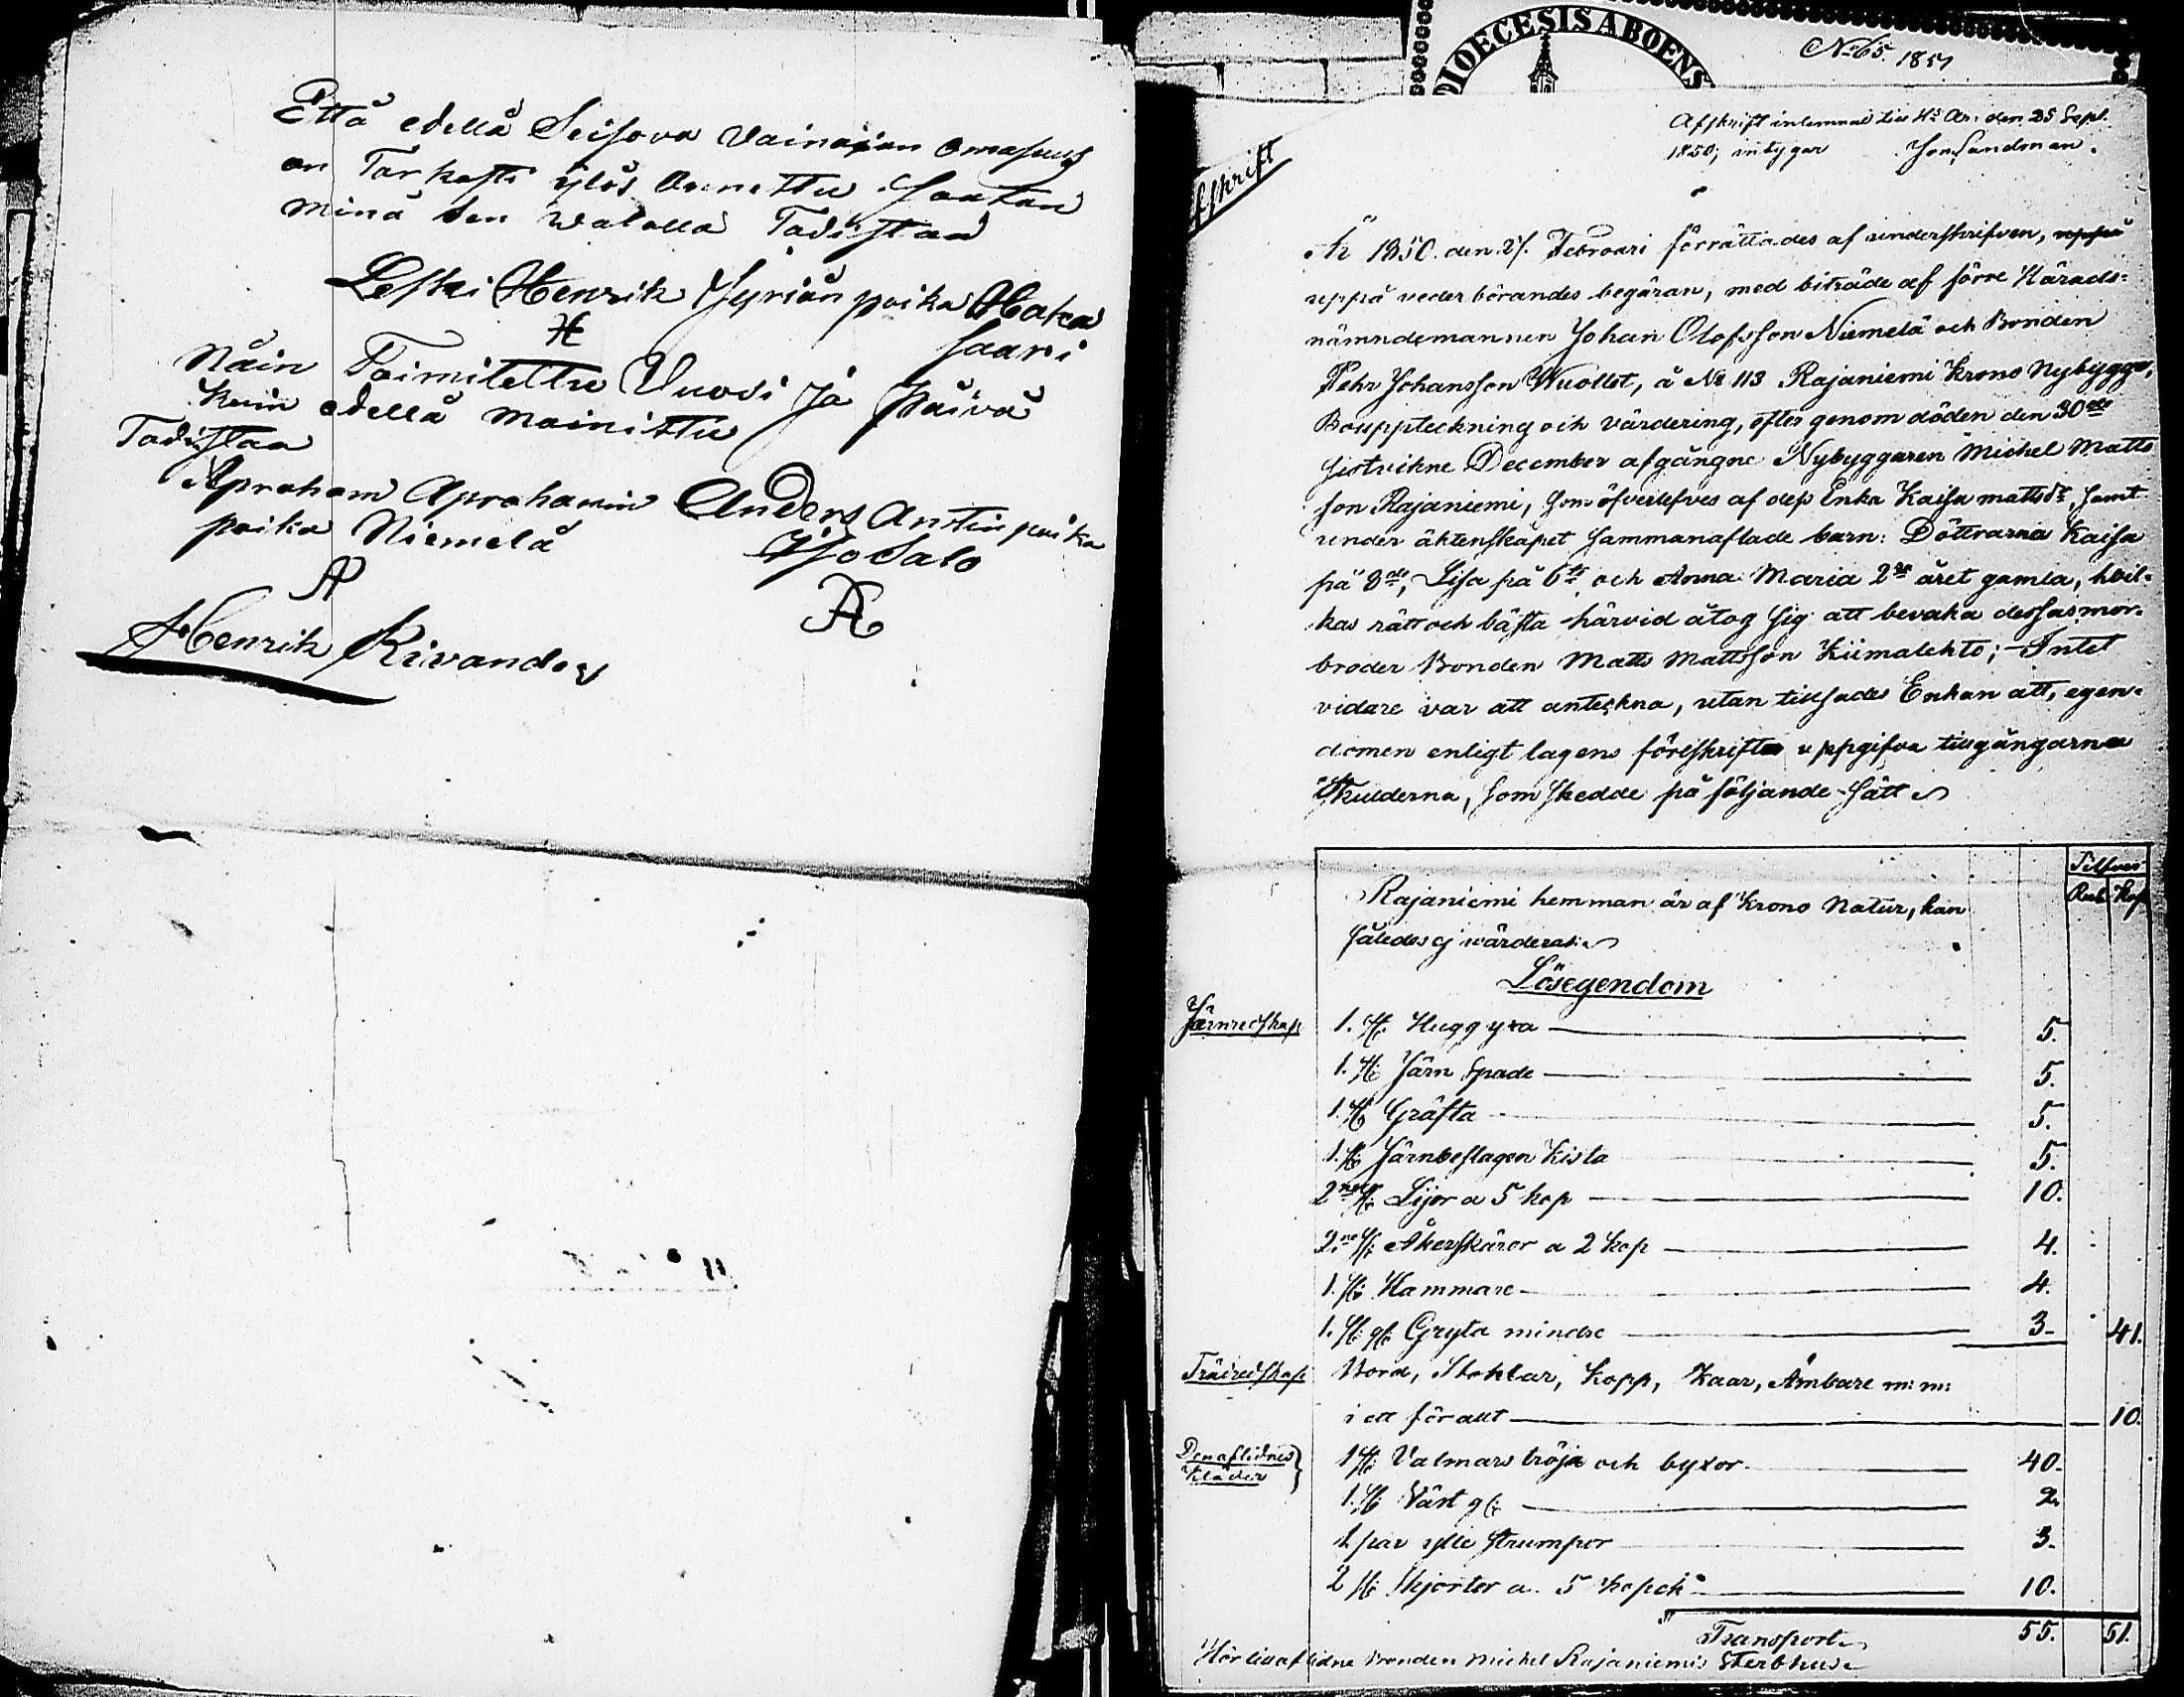 Että edellä Seisova Vainaian omasuus
on Tarkasti ylös Annettu Saatan
minä sen Walalla Todistaa
Leski Henrik Yyriän poika Haka
H saari
Näin Toimitettu Vuosi ja päivä
Kuin edellä mainittu
Todistaa
Apraham Aprahamin Anders Antin poika
poika Niemelä Iso Salo
AP AA
Henrik Kivander
DIOECESIS ABOENS
No 65. 1851
Afskrift inlemnad till Hs Ar: den 25 Sept.
1850; intygar Jon Sandman.
Afskrift
År 1850. den 21. Februari förrättades af underskrifven,
uppå vederbörandes begäran, med biträde af förre Härads-
nämndemannen Johan Olofsson Niemelä och Bonden
Pehr Johansson Wuollet, å No 113 Rajaniemi Krono Nybygge,
Bouppteckning och värdering, efter genom döden den 30de
sistvikne December afgångne Nybyggaren Michel Matts
son Rajaniemi, som öfverlefves af dess Enka Kaisa mattsdr, samt
under äktenskapet sammanaflade barn: Döttrarna Kaisa
på 8de, Lisa på 6te och Anna Maria 2dra året gamla, hvil-
kas rätt och bästa härvid åtog sig att bevaka dessas mor-
broder Bonden Matts Mattsson Kiimalehto; Intet
vidare var att anteckna, utan tillsades Enkan att, egen-
domen enligt lagens föreskrifter uppgifva tillgångarna
Skulderna, som skedde på följande sätt
Silfver
Rub Kop
Rajaniemi hemman är af Krono Natur, kan
således ej värderas
Lösegendom
Järnredskap 1. st: Huggyxa 5.
1. st: Järn Spade 5.
1. st: Gräfta 5.
1. st: Järnbeslagen Kista 5.
2ne st: Lijor a 5 kop 10.
2ne st: Åkerskäror a 2 kop 4.
1. st: Hammare 4.
1. st: gl: Gryta mindre 3 41.
Trädredskap Bord, Stoklar, Kopp, Kaar, Ämbare m: m:
i ett för allt 10.
Den aflidnes 1 st: Valmars tröja och byxor 40.
Kläder 1. st: Väst gl: 2.
1 par ylle strumpor 3.
2 st: Skjortor a. 5 kopek 10.
Transport 55. 51.
Hör till aflidne Bonden Michel Rajaniemis Sterbhus